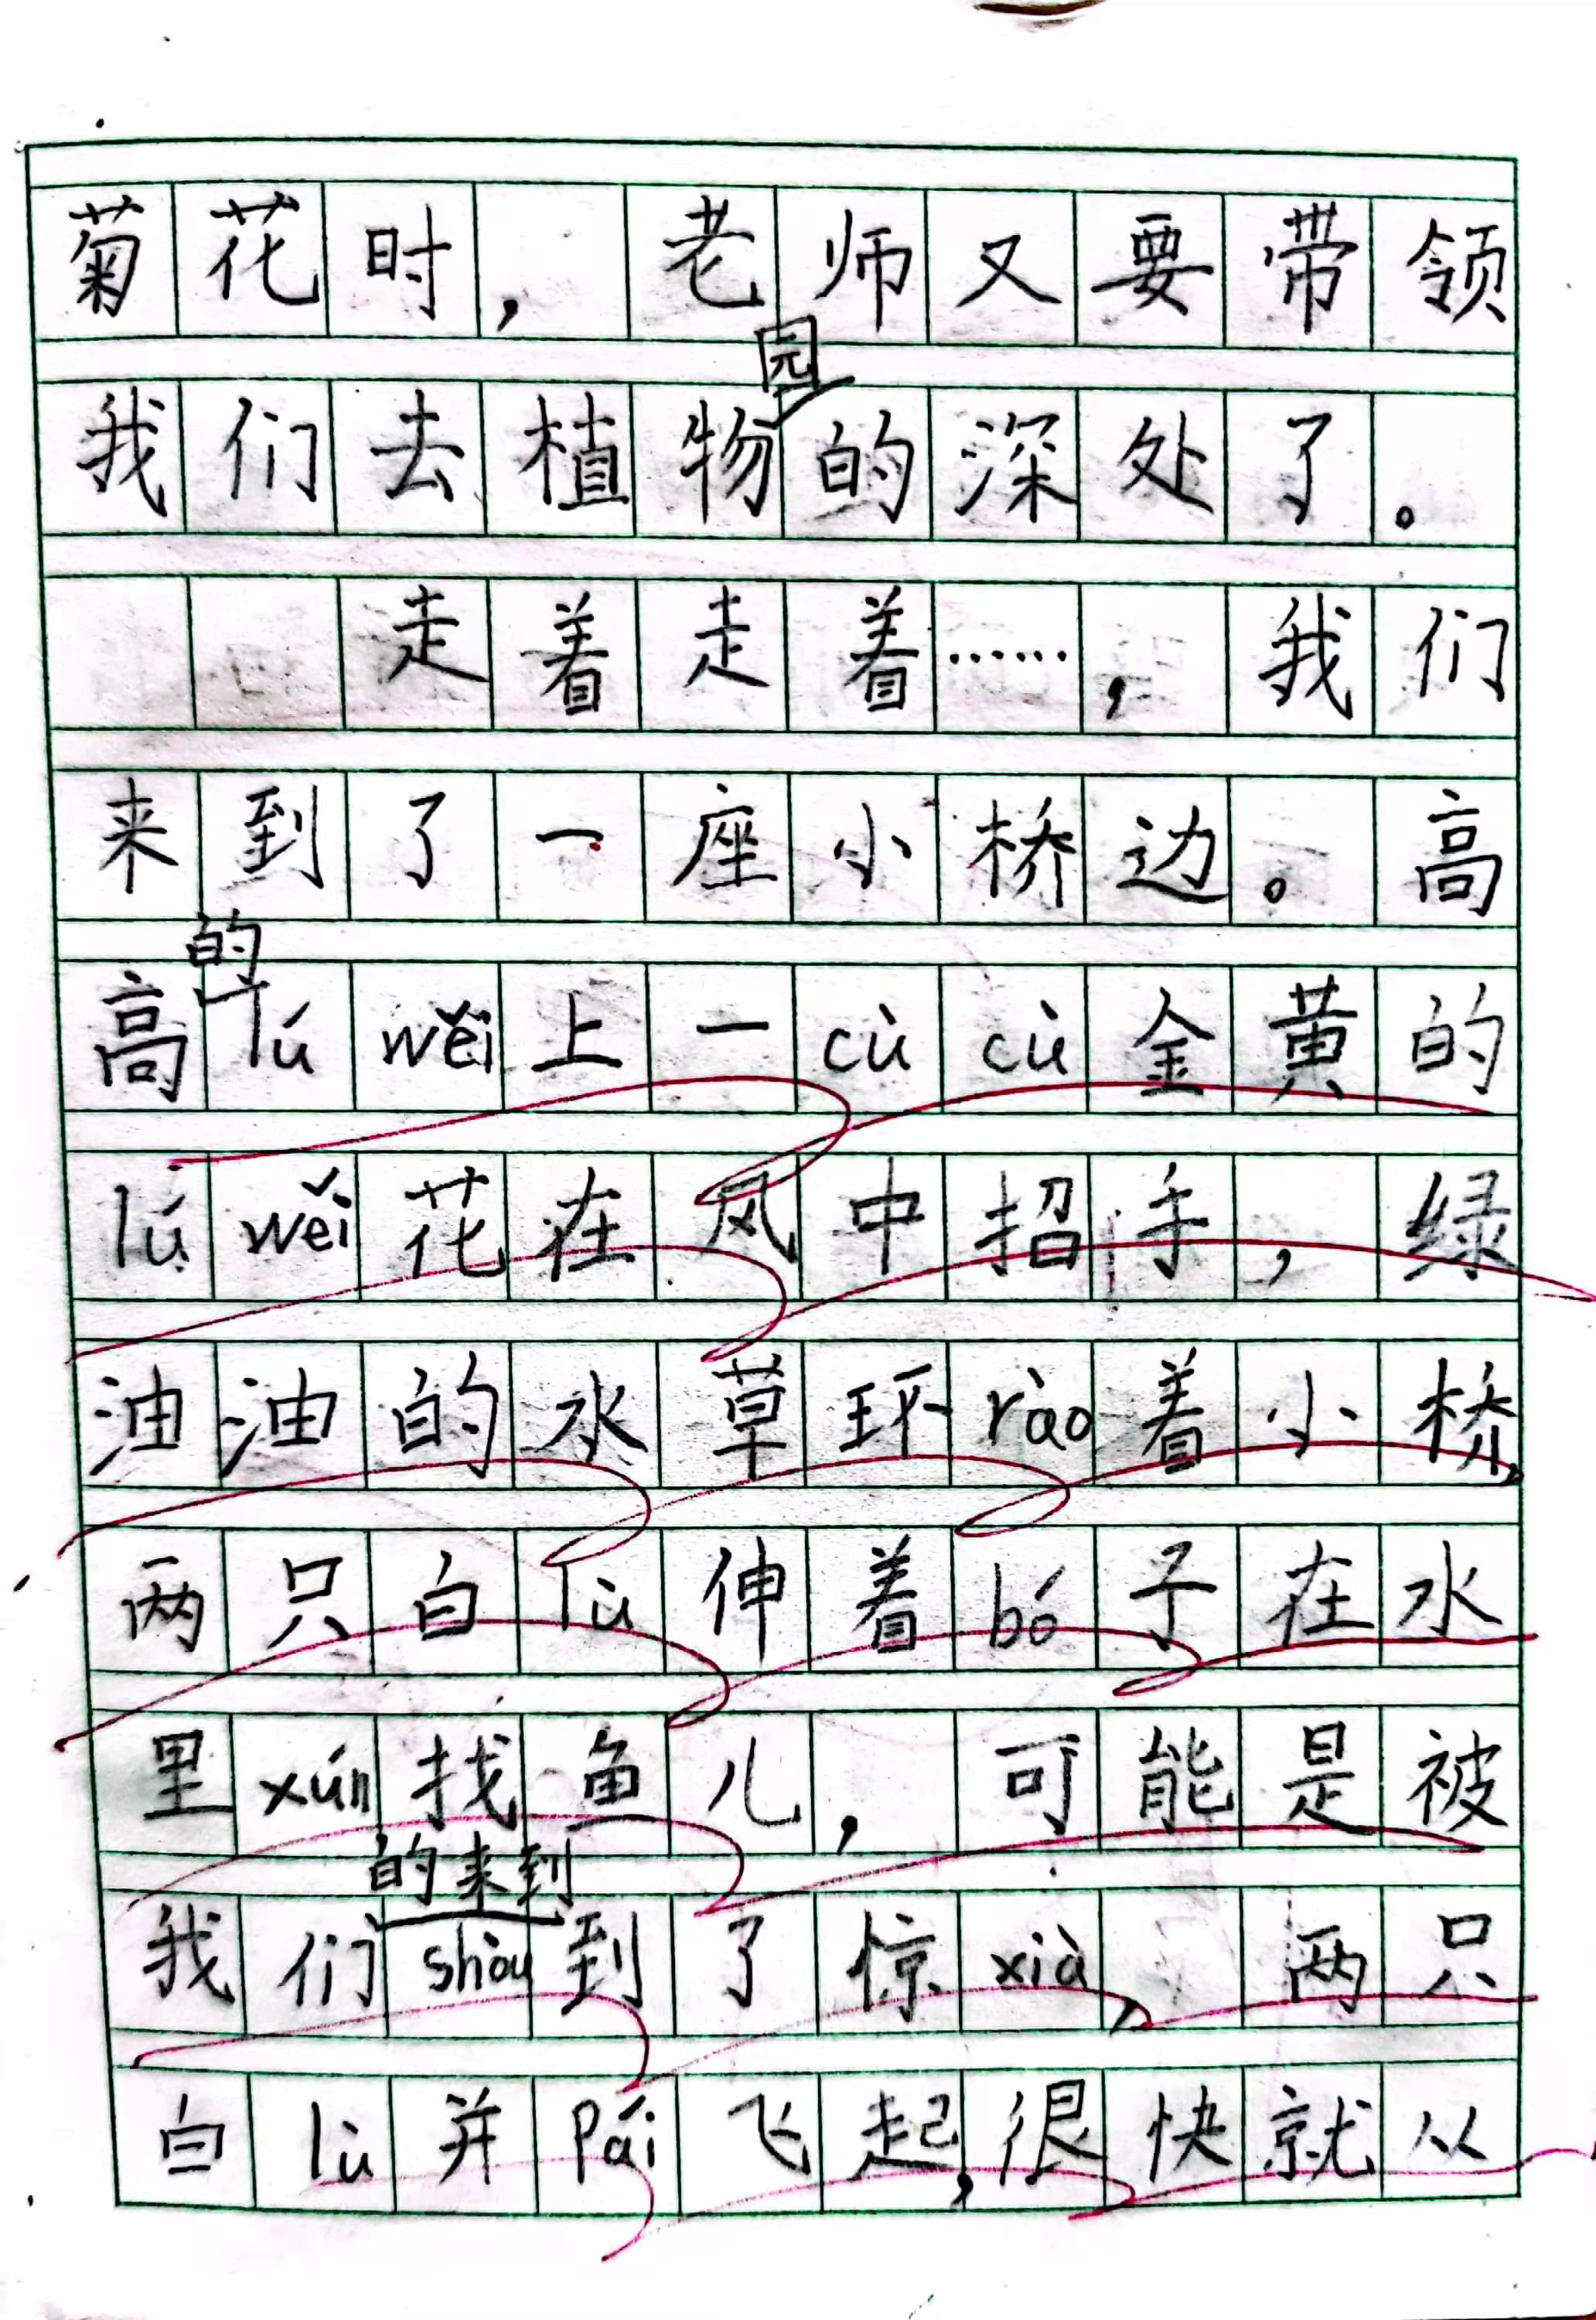 菊花时，老师又要带领
园
我们去植物的深处了。
走着走着……，我们
来到了一座小桥边。高
的
高lú wěi上一cù cù金黄的
lú wěi花在风中招手，绿
油油的水草环rào着小桥，
两只白lù伸着bó子在水
里xún找鱼儿，可能是被
的来到
我们shòu到了惊xià，两只
白lù并pái飞起，很快就从